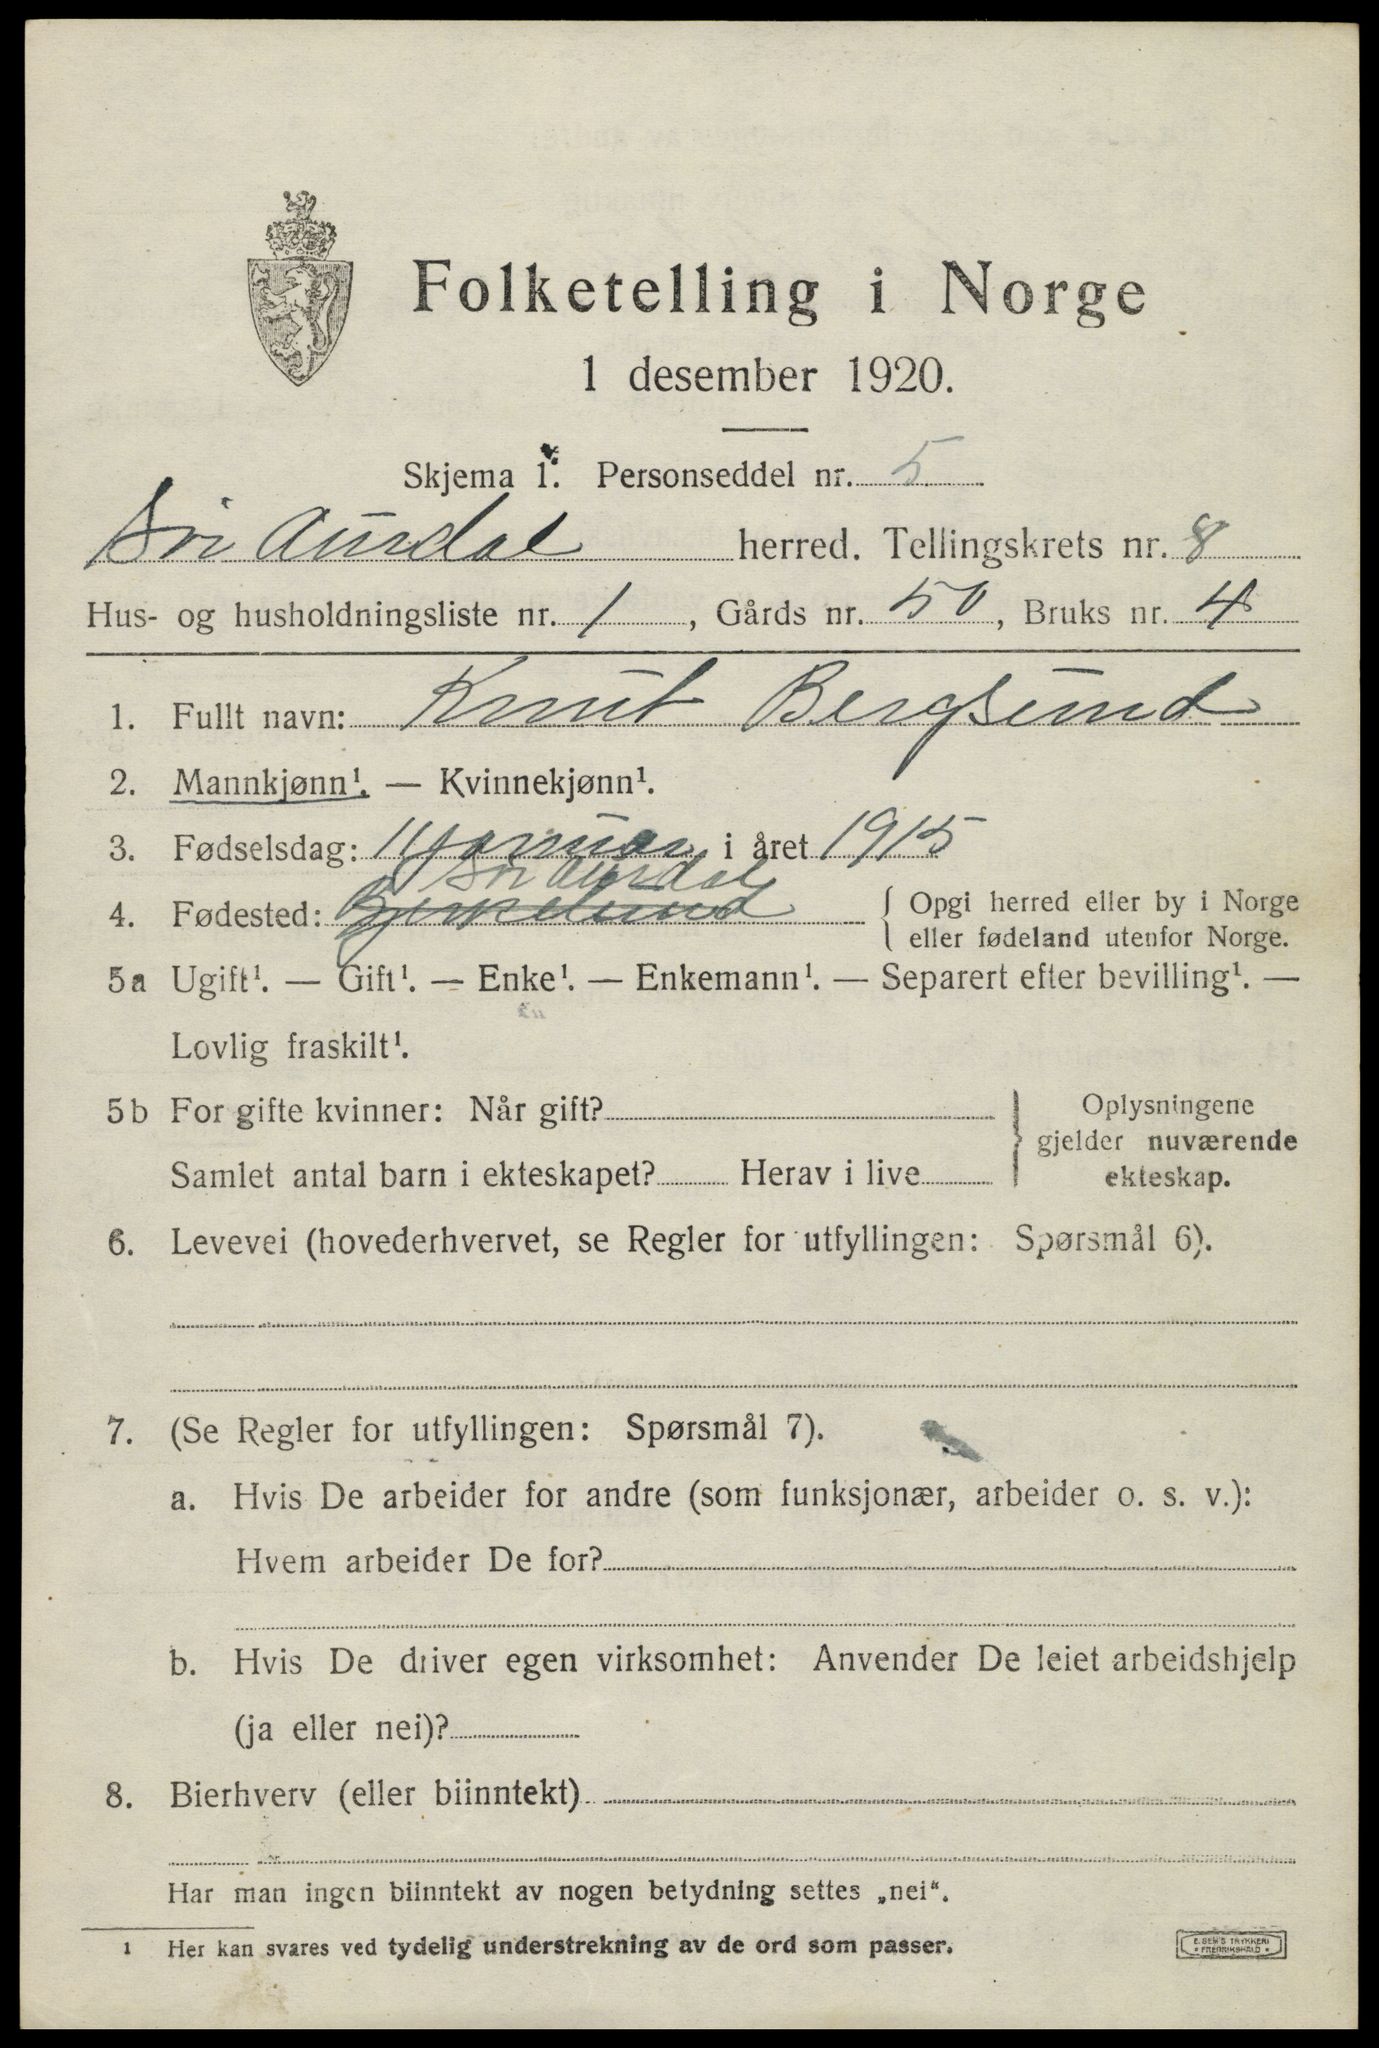 Folketelling i Norge
1 desember 1920.
Skjema 1. Personseddel nr. 5
Sør Aurdal herred. Tellingskrets nr. 8
Hus- og husholdningsliste nr. 1, Gårds nr. 50, Bruks nr. 4
1. Fullt navn: Knut Bergsund
2. Mannkjønn¹. — Kvinnekjønn¹.
3. Fødselsdag: 11 Januar i året 1915
Sør Aurdal
4. Fødested: Bjerkelund { Opgi herred eller by i Norge
eller fødeland utenfor Norge.
5a Ugift¹. — Gift¹. — Enke¹. — Enkemann¹. — Separert efter bevilling¹. —
Lovlig fraskilt¹.
5b For gifte kvinner: Når gift? } Oplysningene
gjelder nuværende
Samlet antal barn i ekteskapet? Herav i live ekteskap.
6. Levevei (hovederhvervet, se Regler for utfyllingen: Spørsmål 6).
7. (Se Regler for utfyllingen: Spørsmål 7).
a. Hvis De arbeider for andre (som funksjonær, arbeider o. s. v.):
Hvem arbeider De for?
b. Hvis De driver egen virksomhet: Anvender De leiet arbeidshjelp
(ja eller nei)?
8. Bierhverv (eller biinntekt)
Har man ingen biinntekt av nogen betydning settes „nei“.
1 Her kan svares ved tydelig understrekning av de ord som passer.
E. SEM'S TRYKKERI
FREDRIKSHALD